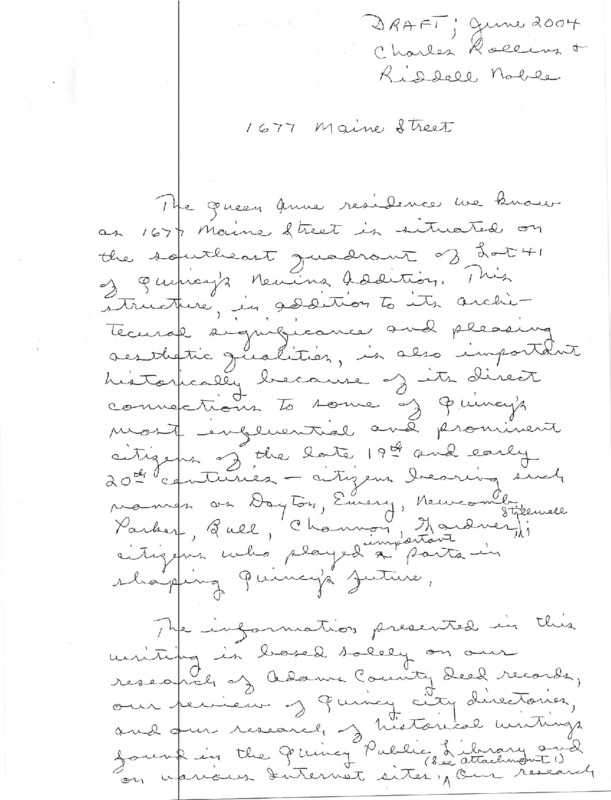 DRAFT; June 2004
Charles Rollins &
Riddell Noble
1677 Maine Street
The Queen Anne residence we know
as 1677 Maine Street is situated on
the southeast quadrant of Lot 41
of Quincy's Nevins Addition. This
structure, in addition to its archi-
tecural significance and pleasing
aesthetic qualities, is also important
historically because of its direct
connections to some of Quincy's
most influential and prominent
citizens of the late 19th and early
20th centuries – citizens bearing such
names as Dayton, Emery, Newcomb,
Parker, Bull, Channon, Gardner, Stillwell;
citizens who played important parts in
shaping Quincy's future.
The information presented in this
writing is based solely on our
research of Adams County deed records,
our review of Quincy city directories,
and our research of historical writings
found in the Quincy Public Library and
on various Internet sites. (See attachment 1) Our research